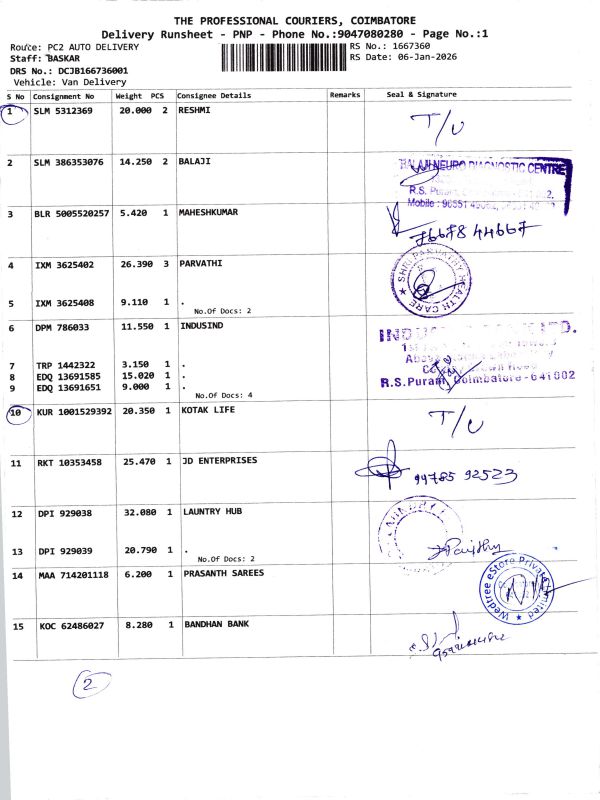 THE PROFESSIONAL COURIERS, COIMBATORE
Delivery Runsheet - PNP - Phone No.:9047080280 - Page No.:1
Route: PC2 AUTO DELIVERY
RS No.: 1667360
Staff: BASKAR
RS Date: 06-Jan-2026
DRS No.: DCJB166736001
Vehicle: Van Delivery
S No Consignment No Weight PCS Consignee Details Remarks Seal & Signature
1 SLM 5312369 20.000 2 RESHMI
T/U
2 SLM 386353076 14.250 2 BALAJI
BALAJI NEURO DIAGNOSTIC CENTRE
R.S. Puram,
Mobile : 96551
3 BLR 5005520257 5.420 1 MAHESHKUMAR
76678 44667
4 IXM 3625402 26.390 3 PARVATHI
SHRI PARVATHY HEALTH CARE
5 IXM 3625408 9.110 1 .
No.Of Docs: 2
6 DPM 786033 11.550 1 INDUSIND
LTD.
7 TRP 1442322 3.150 1 .
8 EDQ 13691585 15.020 1 .
9 EDQ 13691651 9.000 1 .
R.S.Puram, Coimbatore - 641002
No.Of Docs: 4
10 KUR 1001529392 20.350 1 KOTAK LIFE
T/U
11 RKT 10353458 25.470 1 JD ENTERPRISES
94785 92523
12 DPI 929038 32.080 1 LAUNTRY HUB
13 DPI 929039 20.790 1 .
No.Of Docs: 2
14 MAA 714201118 6.200 1 PRASANTH SAREES
Wedtree eStore Private Limited
15 KOC 62486027 8.280 1 BANDHAN BANK
2